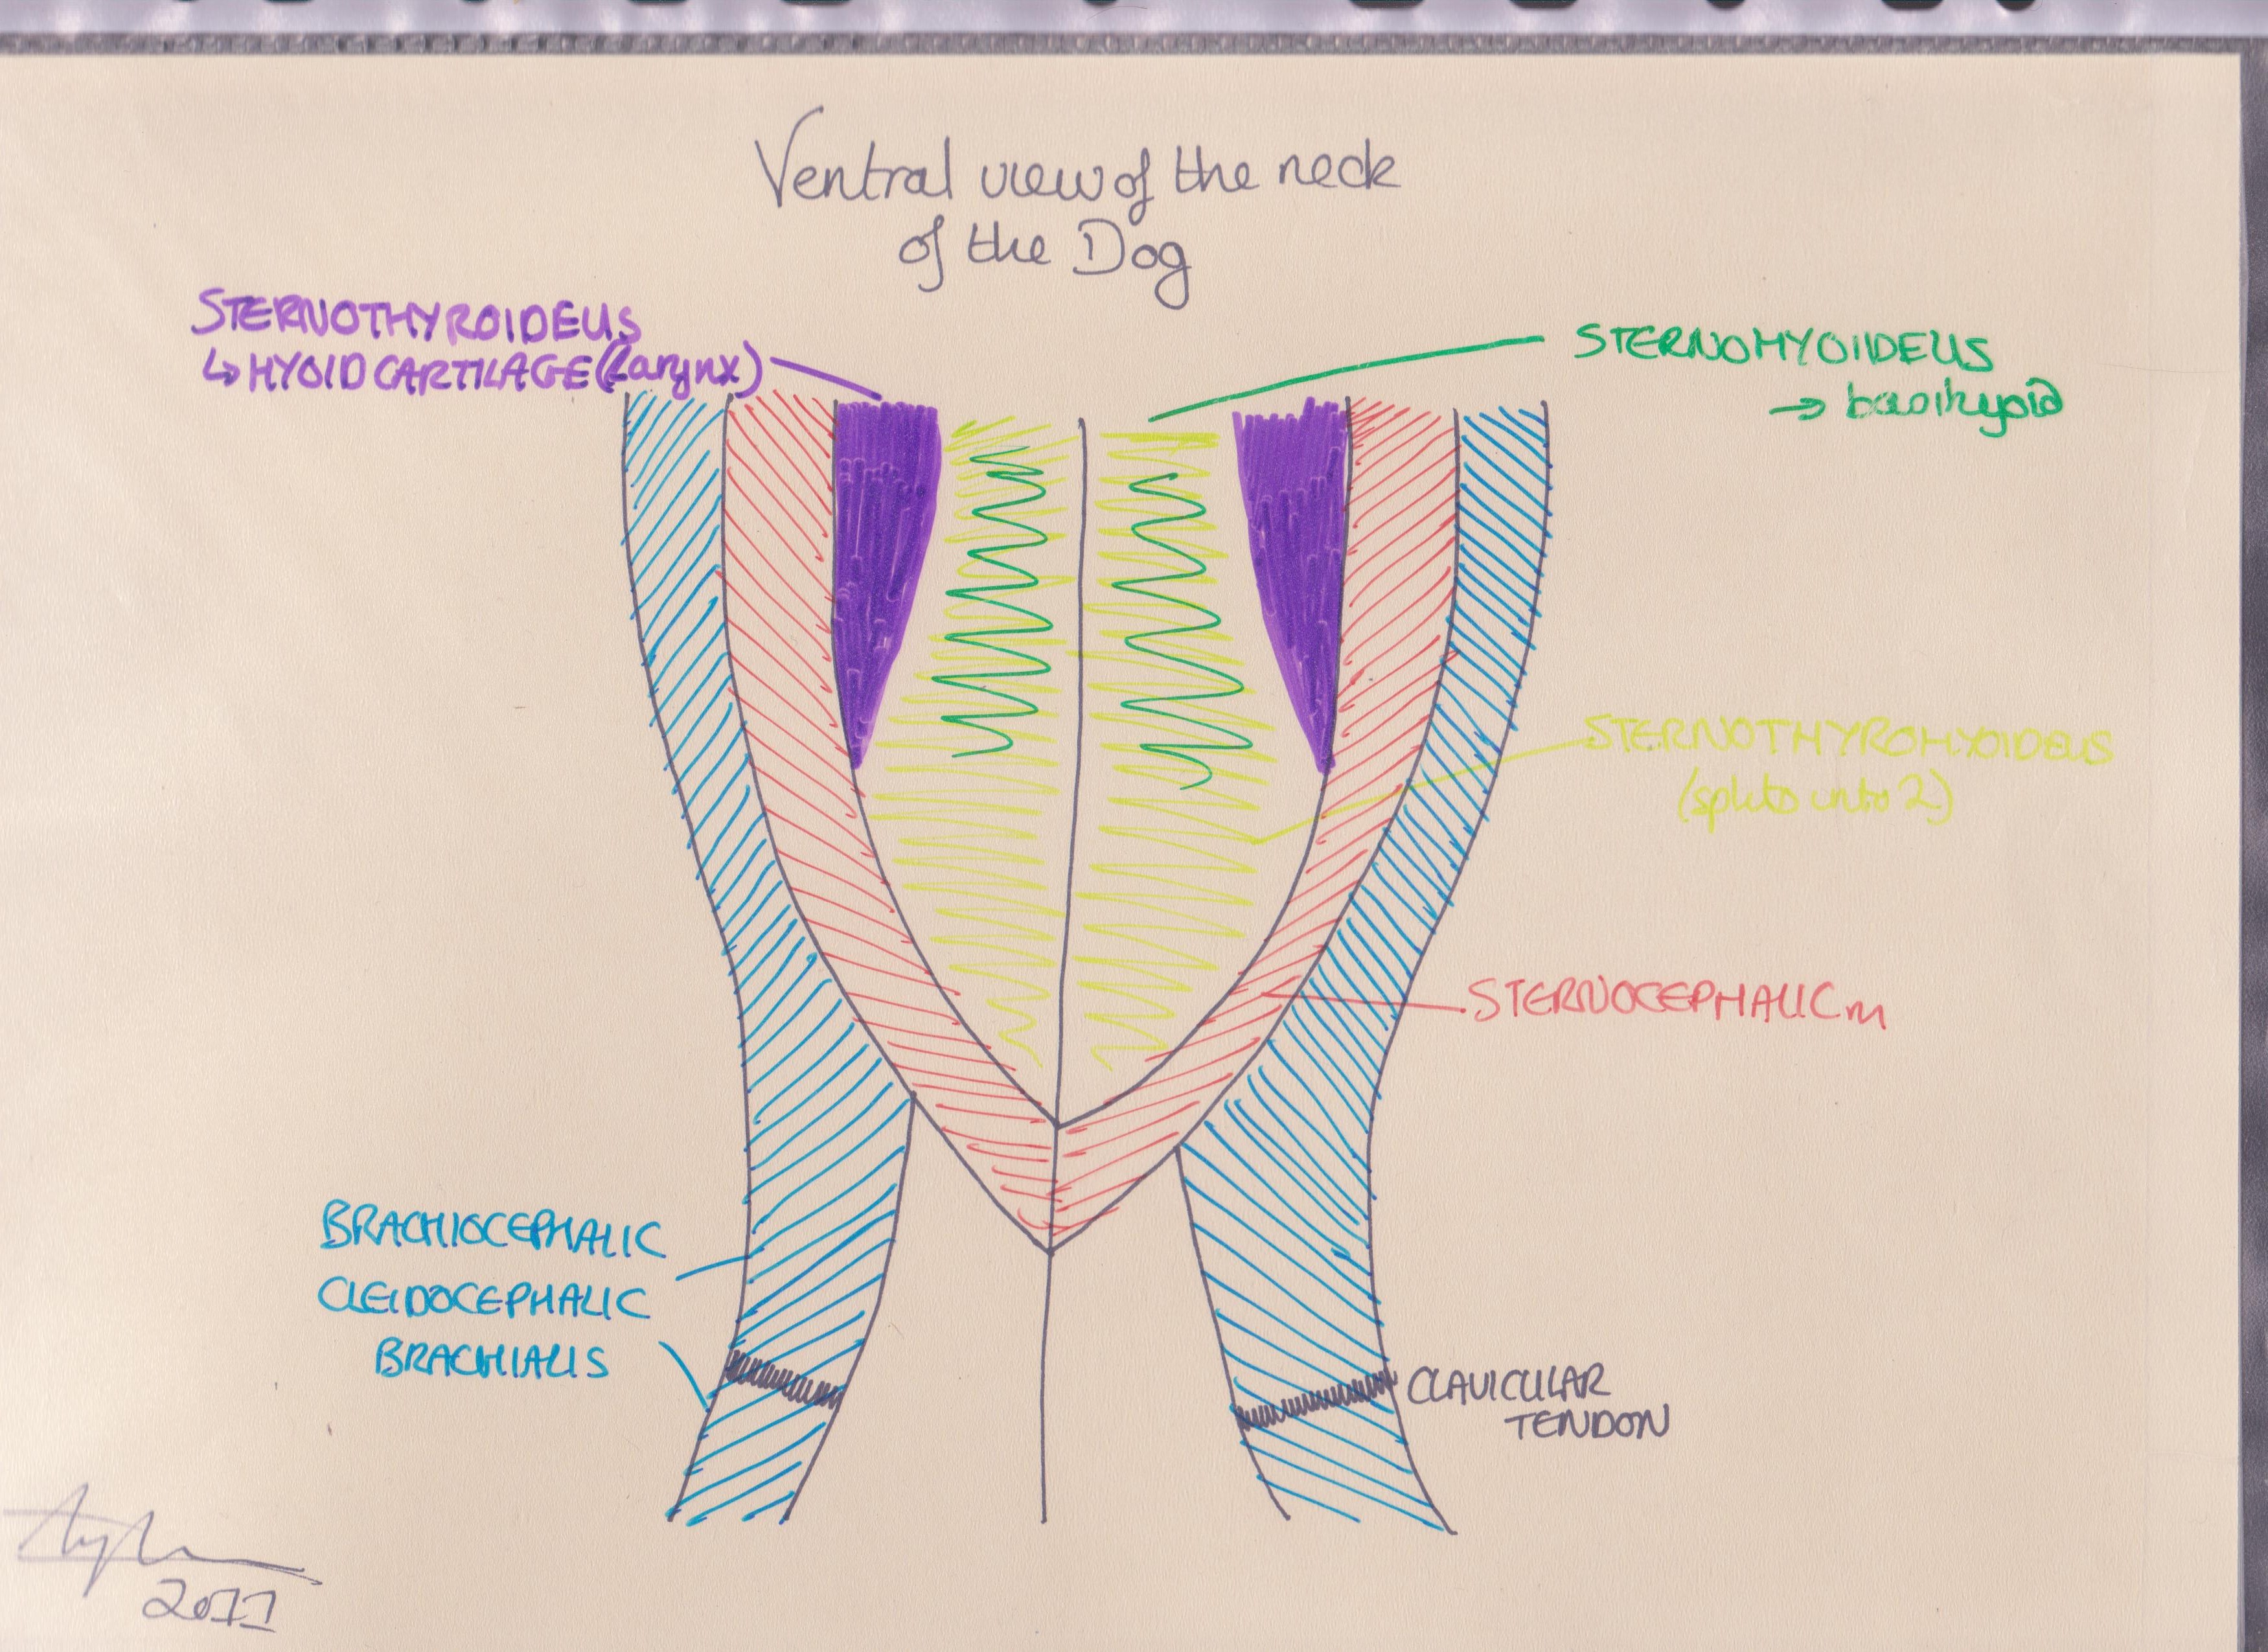 Ventral view of the neck
of the Dog
STERNOTHYROIDEUS
↳ HYOID CARTILAGE (Larynx)
STERNOHYOIDEUS
→ basihyoid
STERNOTHYROHYOIDEUS
(splits into 2)
STERNOCEPHALIC m
BRACHIOCEPHALIC
CLEIDOCEPHALIC
BRACHIALIS
CLAVICULAR
TENDON
2011